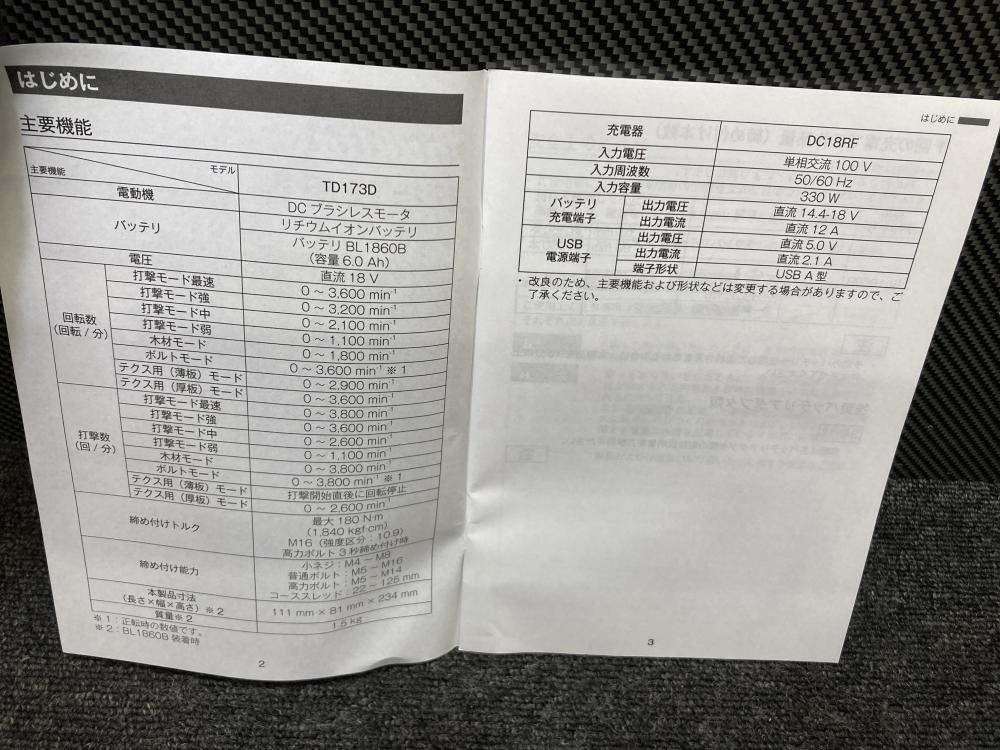 はじめに
主要機能
主要機能 モデル TD173D
電動機 DC ブラシレスモータ
バッテリ リチウムイオンバッテリ
バッテリ BL1860B
(容量 6.0 Ah)
電圧 直流 18 V
回転数
(回転 / 分)
打撃モード最速 0 ~ 3,600 min-1
打撃モード強 0 ~ 3,200 min-1
打撃モード中 0 ~ 2,100 min-1
打撃モード弱 0 ~ 1,100 min-1
木材モード 0 ~ 1,800 min-1
ボルトモード 0 ~ 3,600 min-1 ※ 1
テクス用 (薄板) モード 0 ~ 2,900 min-1
テクス用 (厚板) モード 0 ~ 3,600 min-1
打撃数
(回 / 分)
打撃モード最速 0 ~ 3,800 min-1
打撃モード強 0 ~ 3,600 min-1
打撃モード中 0 ~ 2,600 min-1
打撃モード弱 0 ~ 1,100 min-1
木材モード 0 ~ 3,800 min-1
ボルトモード 0 ~ 3,800 min-1 ※ 1
テクス用 (薄板) モード 打撃開始直後に回転停止
テクス用 (厚板) モード 0 ~ 2,600 min-1
締め付けトルク 最大 180 N·m
(1,840 kgf·cm)
M16 (強度区分 : 10.9)
高力ボルト 3 秒締め付け時
締め付け能力 小ネジ : M4 ~ M8
普通ボルト : M5 ~ M16
高力ボルト : M5 ~ M14
コーススレッド : 22 ~ 125 mm
本製品寸法
(長さ×幅×高さ) ※ 2 111 mm × 81 mm × 234 mm
質量※ 2 1.5 kg
※ 1 : 正転時の数値です。
※ 2 : BL1860B 装着時
2
はじめに
充電器 DC18RF
入力電圧 単相交流 100 V
入力周波数 50/60 Hz
入力容量 330 W
バッテリ
充電端子
出力電圧 直流 14.4-18 V
出力電流 直流 12 A
USB
電源端子
出力電圧 直流 5.0 V
出力電流 直流 2.1 A
端子形状 USB A 型
・ 改良のため、主要機能および形状などは変更する場合がありますので、ご
了承ください。
3